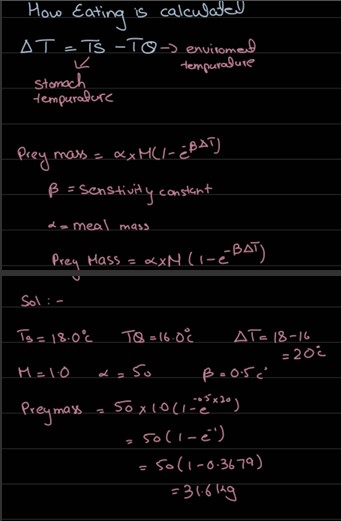 How Eating is calculated
ΔT = Ts - TQ → enviromed tempurature
stomach tempurature
Prey mass = α × M(1 - e^-βΔT)
β = Senstivity constant
α = meal mass
Prey Mass = α × M (1 - e^-βΔT)
Sol :-
Ts = 18.0°c TQ = 16.0°c ΔT = 18 - 16
= 20°c
M = 1.0 α = 50 β = 0.5 c'
Prey mass = 50 × 1.0 (1 - e^-0.5×20)
= 50 (1 - e^-1)
= 50 (1 - 0.3679)
= 31.6 kg